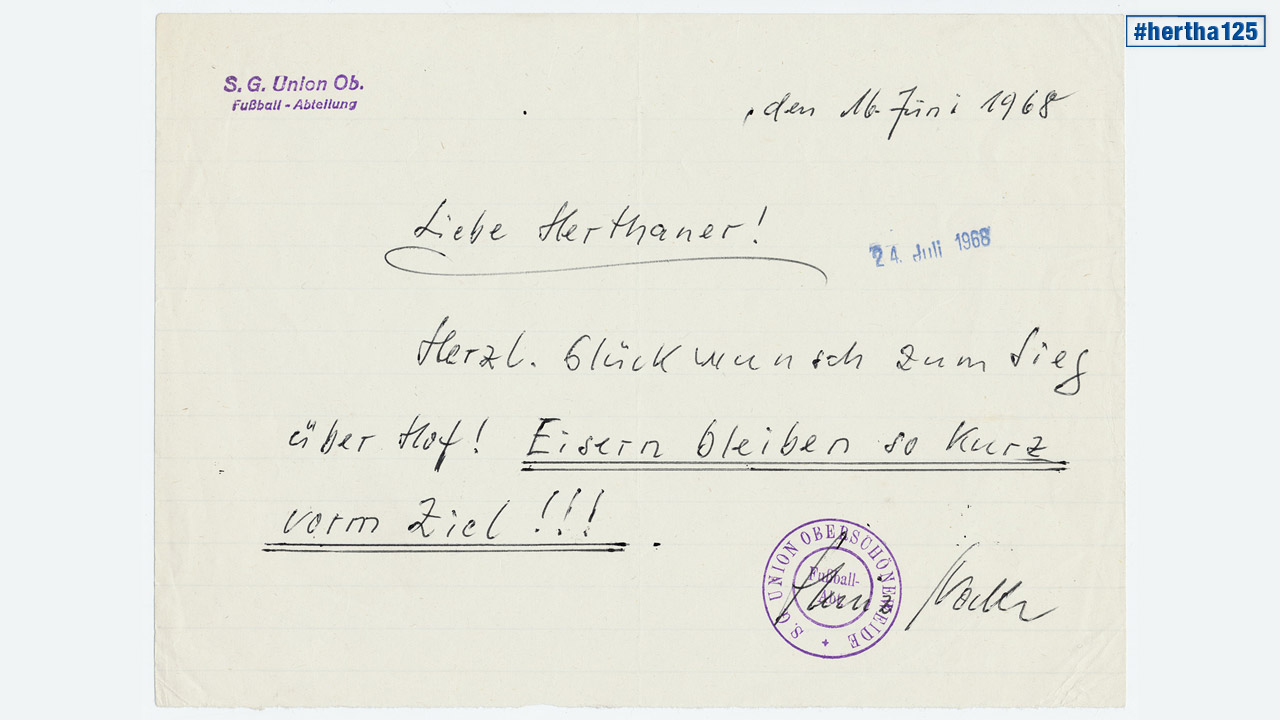 #hertha125
S. G. Union Ob.
Fußball - Abteilung
, den 16. Juni 1968
Liebe Herthaner!
24. Juli 1968
Herzl. Glückwunsch zum Sieg
über Hof! Eisern bleiben so kurz
vorm Ziel!!!
S. G. UNION OBERSCHÖNEWEIDE
Fußball-
Abt.